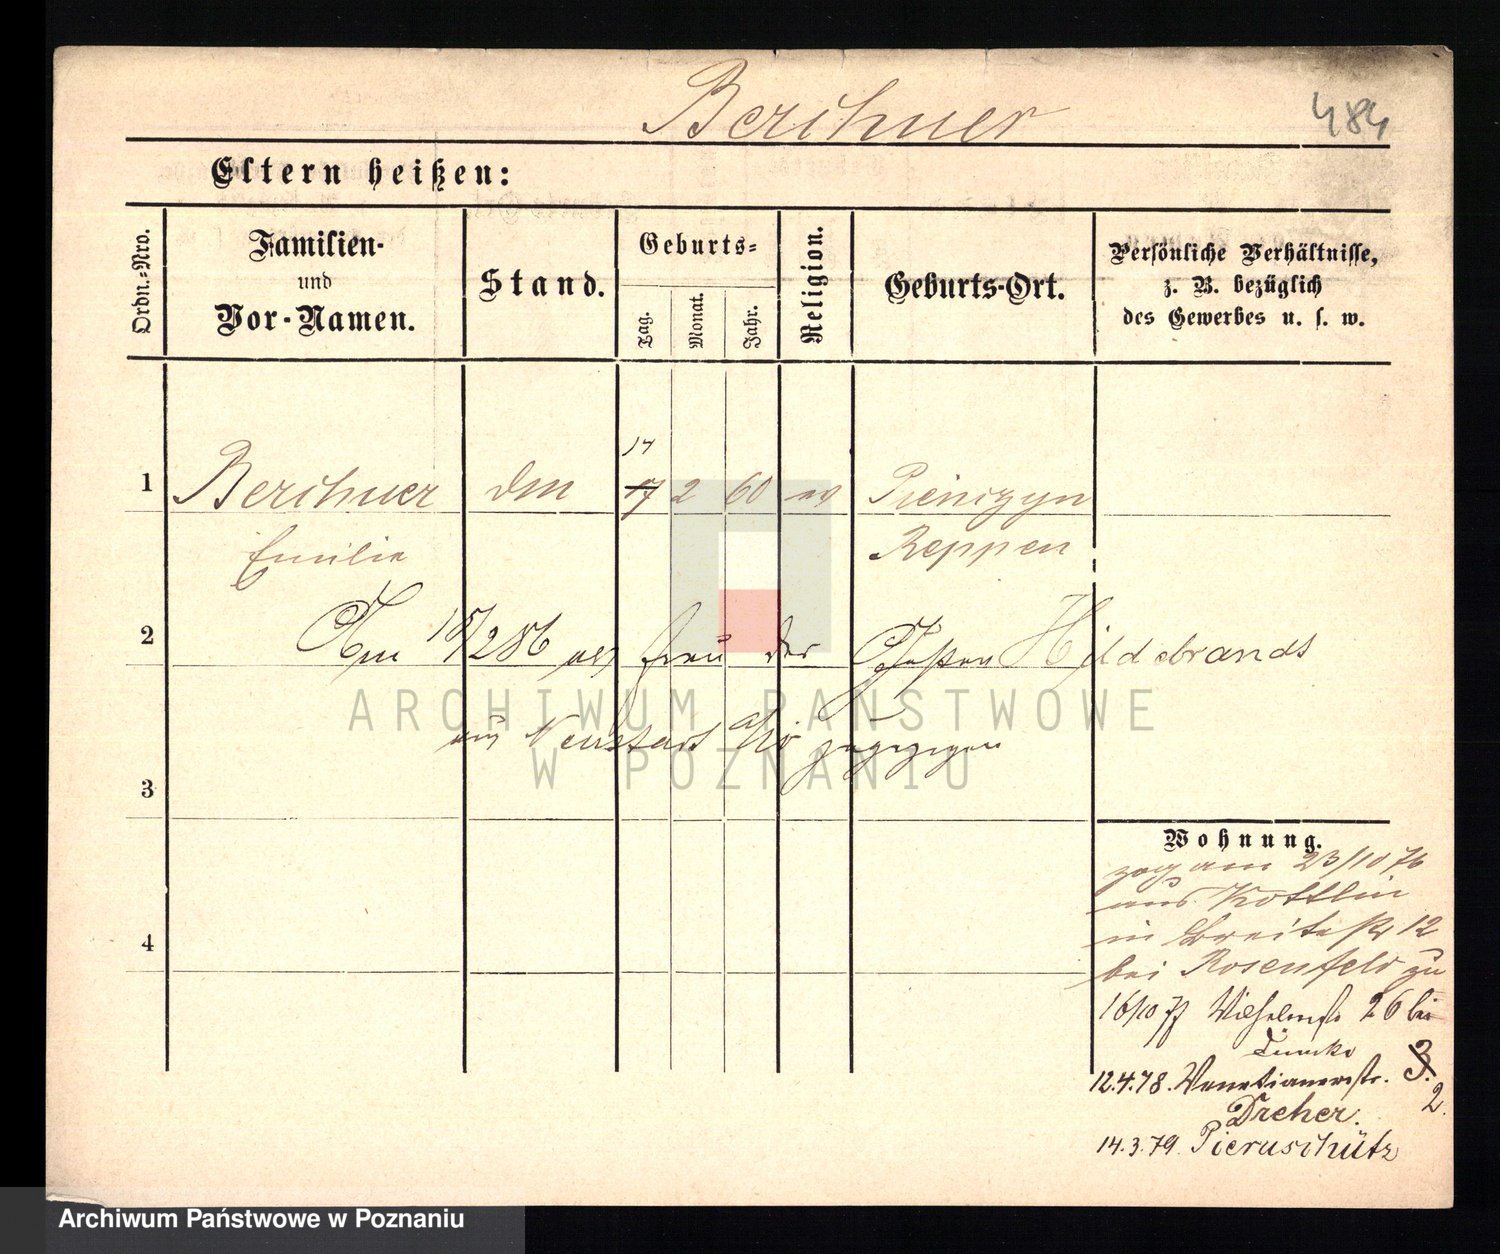 Berchner
484
Eltern heißen:
Ordn.-Nro.
Familien-
und
Vor-Namen.
Stand.
Geburts-
Tag.
Monat.
Jahr.
Religion.
Geburts-Ort.
Persönliche Verhältnisse,
z. B. bezüglich
des Gewerbes u. s. w.
14
1 Berchner 17 2 60 ev
Reppen
Emilie
2 Am 15/2 86 als Frau des Hildebrandt
aus Neustadt zugezogen
3
4
Wohnung.
zog am 23/10 76
aus Kottlin
in Breitestr 12
bei Rosenfeld zu
16/10 77 Wilhelmstr 26 bei
12.4.78. Venetianerstr. 3.
2.
Dreher.
14.3.79. Pieruschütz
ARCHIWUM PAŃSTWOWE
W POZNANIU
Archiwum Państwowe w Poznaniu